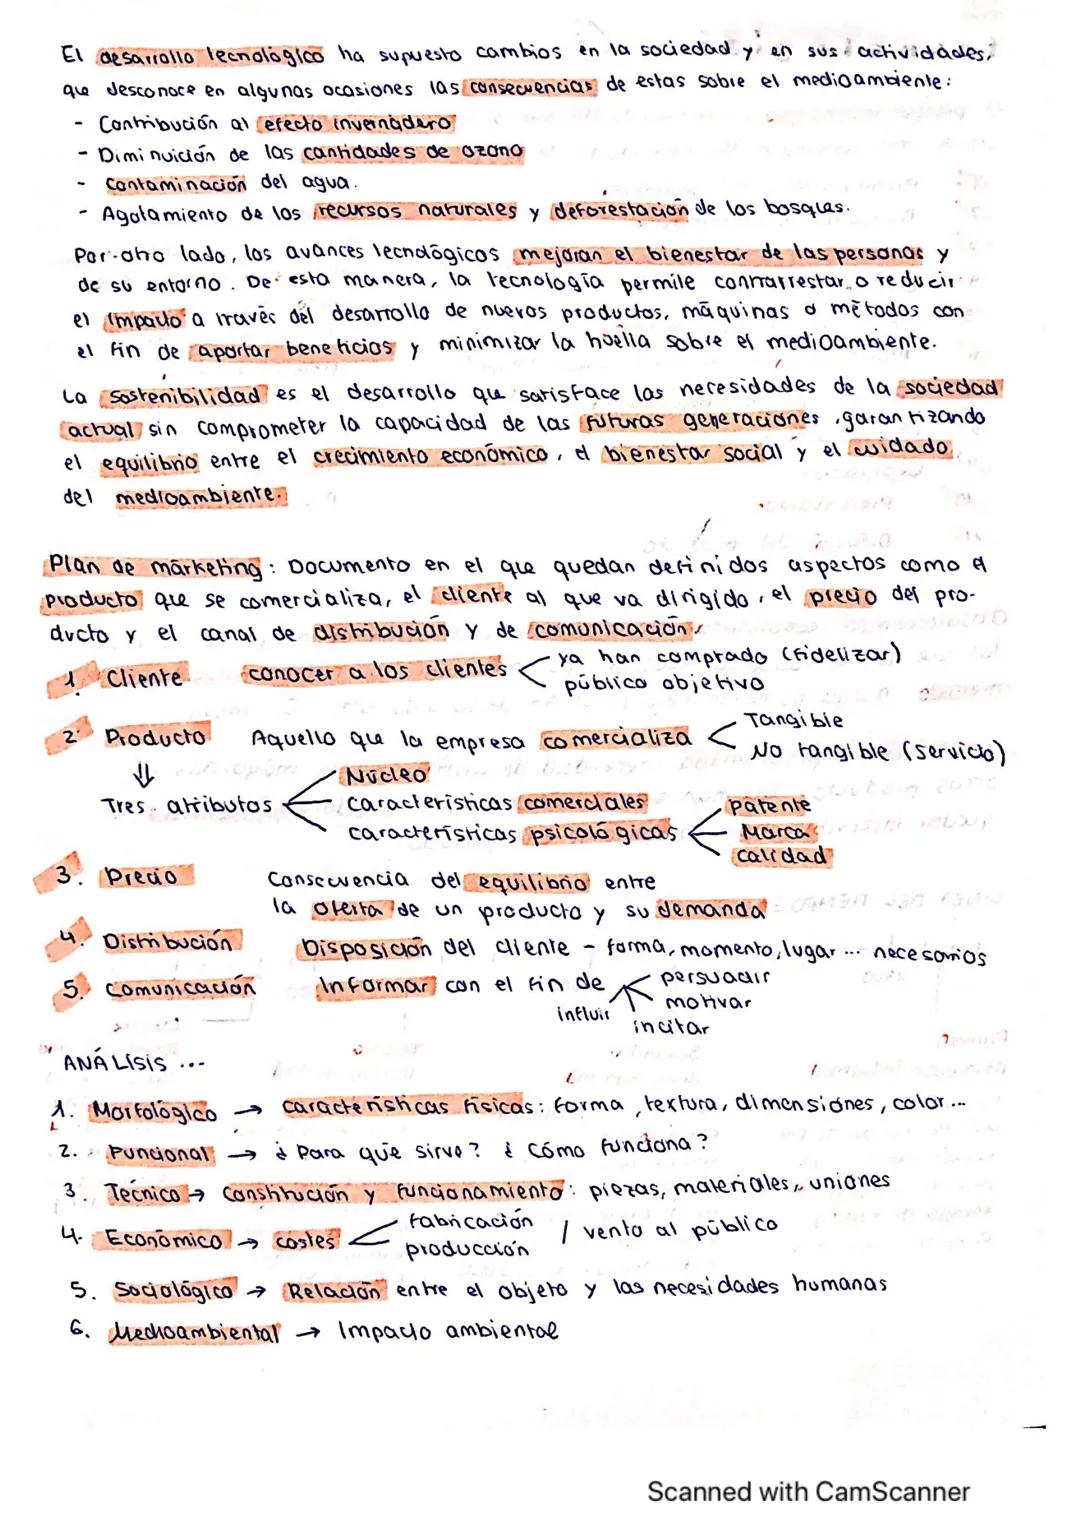 El desarrollo tecnológico ha supuesto cambios en la sociedad y en sus actividades,
que desconoce en algunas ocasiones las consecuencias de estas sobre el medioambiente:
- Contribución al efecto invernadero
- Diminuición de las cantidades de ozono
- Contaminación del agua.
- Agotamiento de los recursos naturales y deforestación de los bosques.
Por otro lado, los avances tecnológicos mejoran el bienestar de las personas y
de su entorno. De esta manera, la tecnología permite contrarrestar o reducir
el impacto a través del desarrollo de nuevos productos, máquinas o métodos con
el fin de aportar beneficios y minimizar la huella sobre el medioambiente.
La sostenibilidad es el desarrollo que satisface las necesidades de la sociedad
actual sin comprometer la capacidad de las futuras generaciones, garantizando
el equilibrio entre el crecimiento económico, el bienestar social y el cuidado
del medioambiente.
Plan de márketing: Documento en el que quedan definidos aspectos como el
producto que se comercializa, el cliente al que va dirigido, el precio del pro-
ducto y el canal de distribución y de comunicación.
1. Cliente conocer a los clientes ya han comprado (fidelizar)
público objetivo
2. Producto Aquello que la empresa comercializa Tangible
No tangible (servicio)
⇓ Núcleo
Tres atributos características comerciales patente
características psicológicas Marca
calidad
3. Precio Consecuencia del equilibrio entre
la oferta de un producto y su demanda
4. Distribución Disposición del cliente - forma, momento, lugar ... necesarios
5. Comunicación Informar con el fin de persuadir
influir motivar
incitar
ANÁLISIS ...
1. Morfológico → características físicas: forma, textura, dimensiones, color...
2. Funcional → ¿Para qué sirve? ¿Cómo funciona?
3. Técnico → Constitución y funcionamiento: piezas, materiales, uniones
4. Económico → costes fabricación / venta al público
producción
5. Sociológico → Relación entre el objeto y las necesidades humanas
6. Medioambiental → Impacto ambiental
Scanned with CamScanner